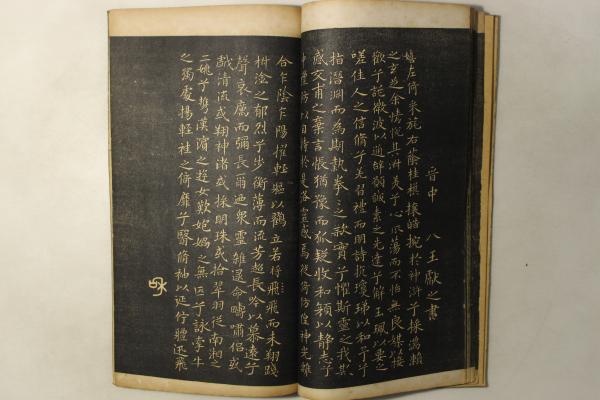 晉中 王獻之書
嬉左倚采旄右蔭桂旗攘皓腕於神滸兮採湍瀨
之玄芝余情悅其淑美兮心振蕩而不怡無良媒以接
歡兮託微波以通辭願誠素之先達兮解玉珮以要之
嗟佳人之信脩兮羌習禮而明詩抗瓊珶以和予兮
指潛淵而為期執拳拳之款實兮懼斯靈之我欺
感交甫之棄言悵猶豫而狐疑收和顏以靜志兮
申禮防以自持於是洛靈感焉徙倚仿偟神光離
合乍陰乍陽擢輕軀以鶴立若將飛飛而未翔踐
椒塗之郁烈兮步蘅薄而流芳超長吟以慕遠兮
聲哀厲而彌長爾迺眾靈雜遝命疇嘯侶或
戲清流或翔神渚或採明珠或拾翠羽從南湘之
二姚兮攜漢濱之遊女歎匏媧之無匹兮詠牽牛
之獨處揚輕袿之倚靡兮翳脩袖以延佇體迅飛